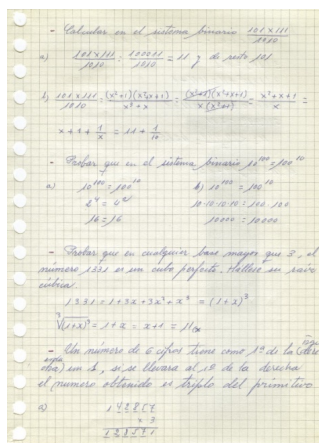 - Calcular en el sistema binario 101x111/1010
a) 101x111/1010 = 100011/1010 = 11 y de resto 101
b) 101x111/1010 = (x²+1)(x²+x+1)/x³+x = (x²+1)(x²+x+1)/x(x²+1) = x²+x+1/x =
x+1+1/x = 11+1/10
- Probar que en el sistema binario 10¹⁰⁰=100¹⁰
a) 10¹⁰⁰=100¹⁰ b) 10¹⁰⁰=100¹⁰
2⁴ = 4² 10·10·10·10 = 100·100
16=16 10000 = 10000
- Probar que en cualquier base mayor que 3, el
número 1331 es un cubo perfecto. Hallese su raíz
cúbica.
1331=1+3x+3x²+x³ = (1+x)³
³√(1+x)³ = 1+x = x+1 = 11
- Un número de 6 cifras tiene como 1ª de la
un 1, si se llevara al 1º de la derecha
el numero obtenido es triplo del primitivo
a) 142857
x 3
428571